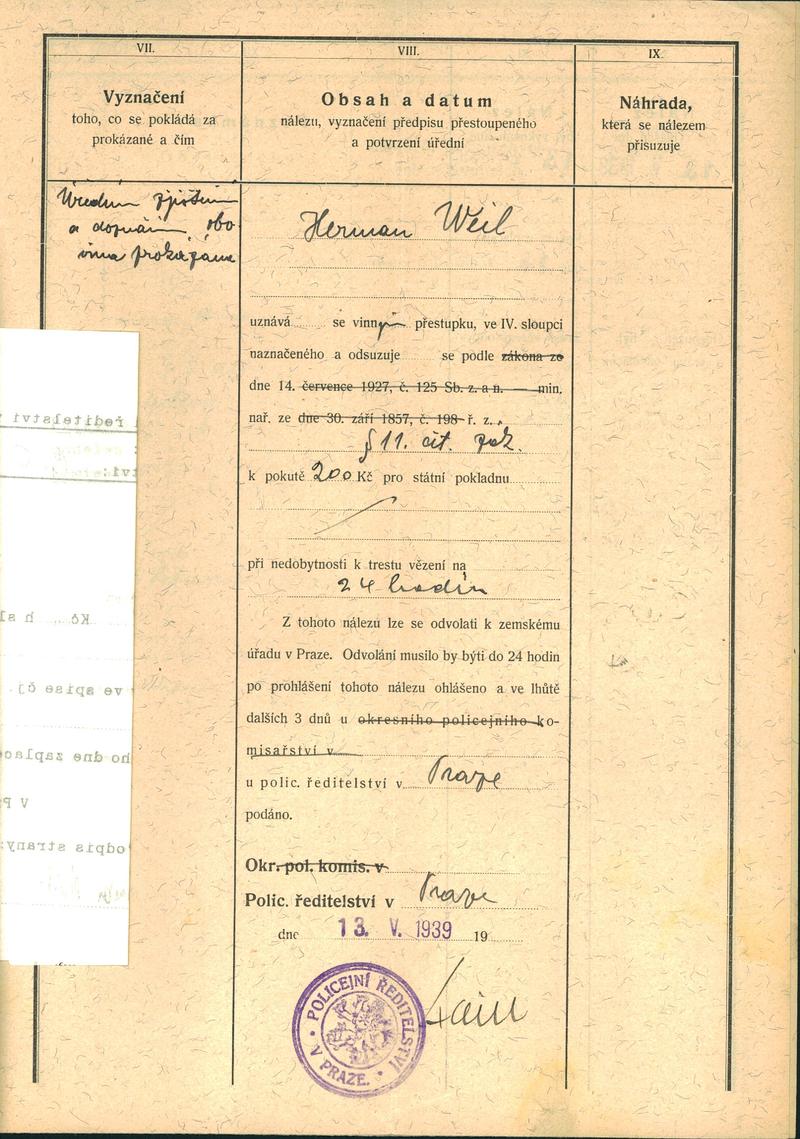 VII.
Vyznačení
toho, co se pokládá za
prokázané a čím
VIII.
Obsah a datum
nálezu, vyznačení předpisu přestoupeného
a potvrzení úřední
IX.
Náhrada,
která se nálezem
přisuzuje
Úředním zjištěním
a doznáním obv.
vina prokázána
Herman Weil
uznává se vinným přestupku, ve IV. sloupci
naznačeného a odsuzuje se podle zákona ze
dne 14. července 1927, č. 125 Sb. z. a n. — min.
nař. ze dne 30. září 1857, č. 198 ř. z.,
§ 11. cit. zák.
k pokutě 200 Kč pro státní pokladnu
při nedobytnosti k trestu vězení na
24 hodin
Z tohoto nálezu lze se odvolati k zemskému
úřadu v Praze. Odvolání musilo by býti do 24 hodin
po prohlášení tohoto nálezu ohlášeno a ve lhůtě
dalších 3 dnů u okresního policejního ko-
misařství v
u polic. ředitelství v Praze
podáno.
Okr. pol. komis. v
Polic. ředitelství v Praze
dne 13. V. 1939 19
POLICEJNÍ ŘEDITELSTVÍ
V PRAZE.
ředitelství
Kč h
ve spise čj.
ho dne zaplac
V P
odpis strany: